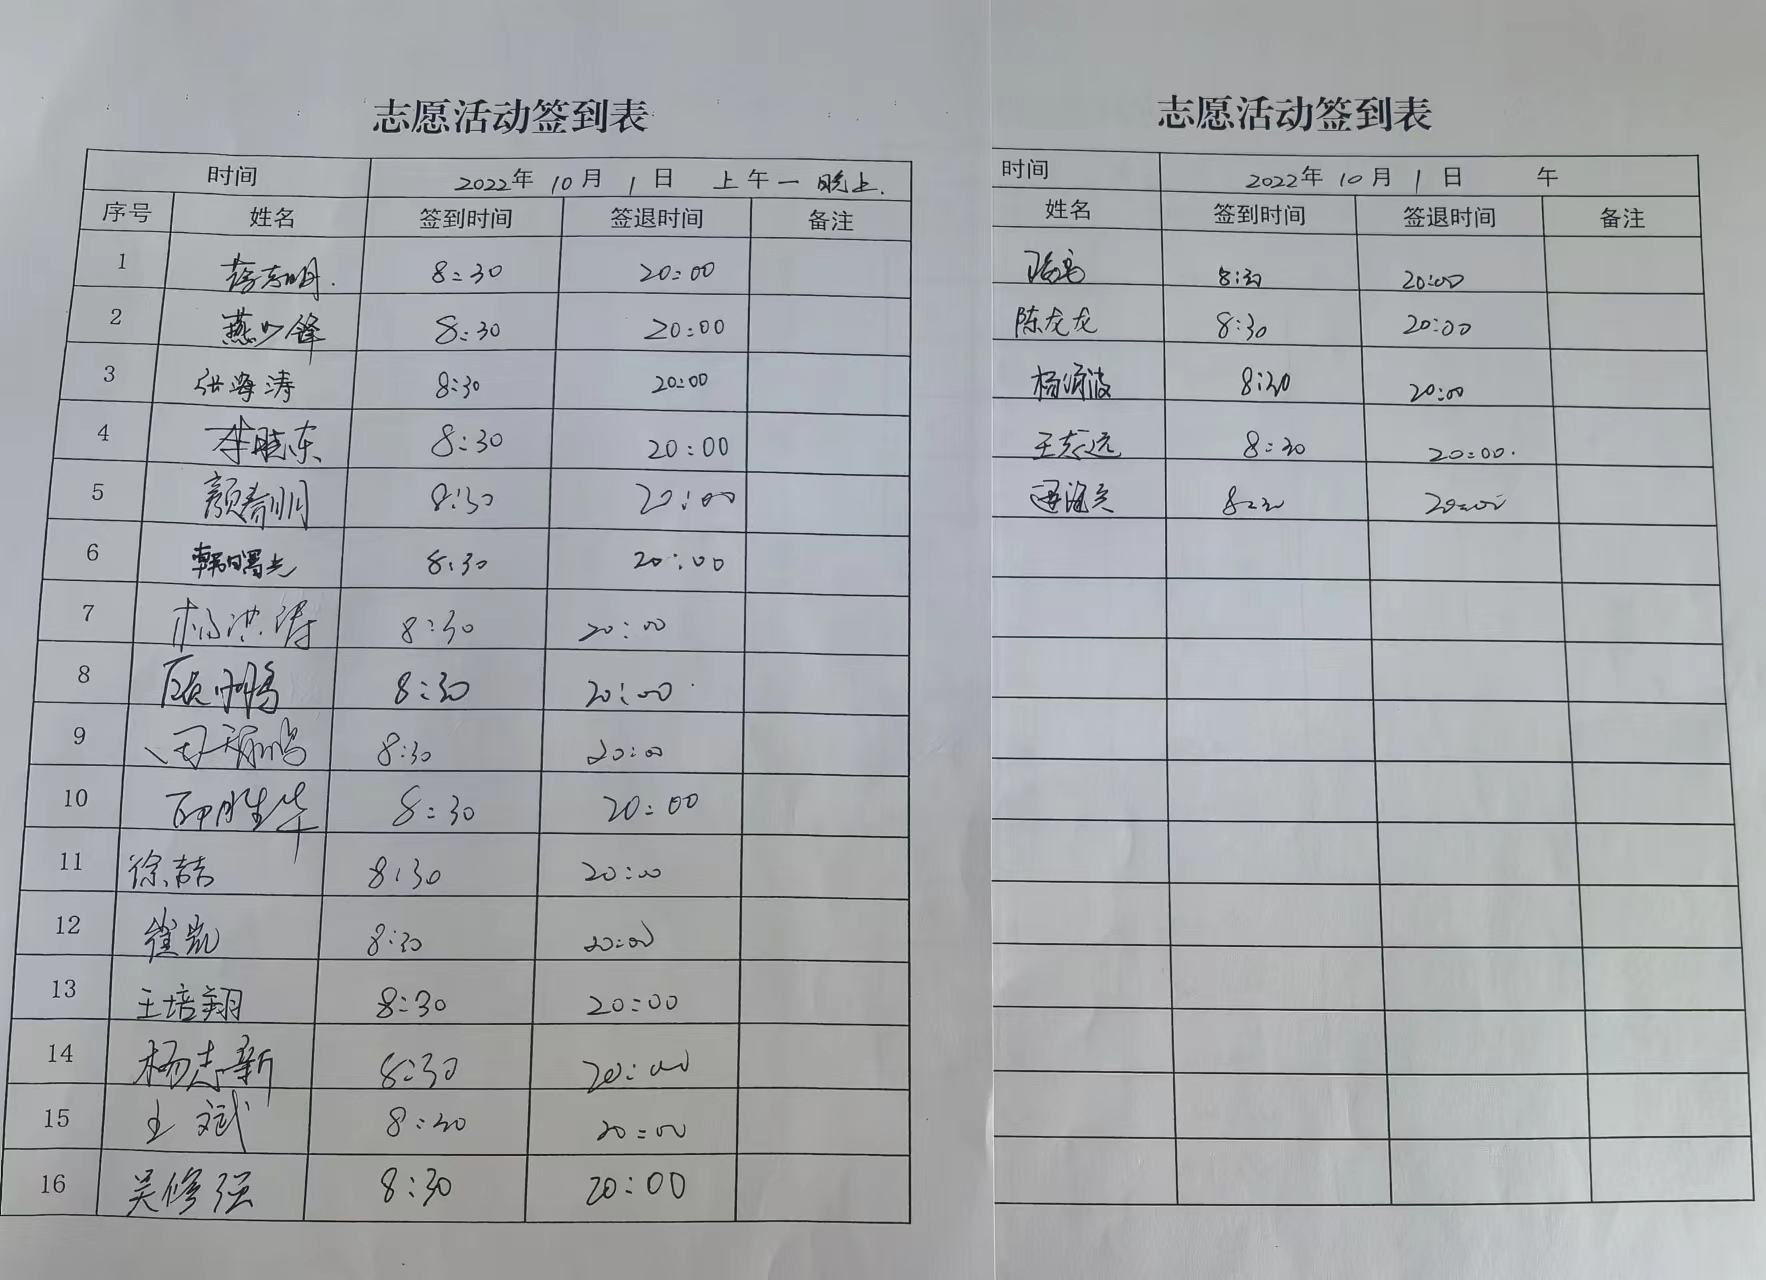 志愿活动签到表
时间 2022年 10月 1日 上午一晚上.
序号 姓名 签到时间 签退时间 备注
1 8:30 20:00
2 燕少锋 8:30 20:00
3 张海涛 8:30 20:00
4 李晓东 8:30 20:00
5 颜春明 8:30 20:00
6 韩曙光 8:30 20:00
7 杨洪涛 8:30 20:00
8 8:30 20:00
9 8:30 20:00
10 8:30 20:00
11 徐喆 8:30 20:00
12 崔凯 8:30 20:00
13 王培翔 8:30 20:00
14 杨志新 8:30 20:00
15 王斌 8:30 20:00
16 吴修强 8:30 20:00
志愿活动签到表
时间 2022年 10月 1日 午
姓名 签到时间 签退时间 备注
8:30 20:00
陈龙龙 8:30 20:00
8:30 20:00
王志远 8:30 20:00.
8:30 20:00